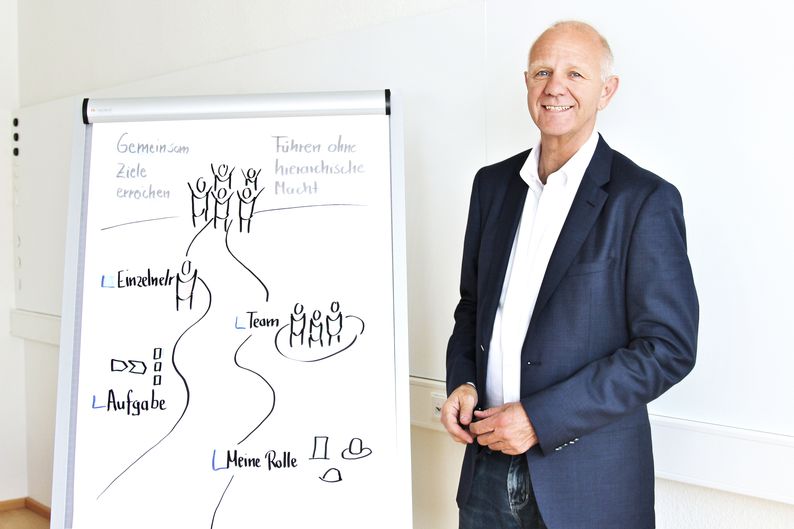 Gemeinsam
Ziele
erreichen
Führen ohne
hierarchische
Macht
Einzelne/r
Team
Aufgabe
Meine Rolle